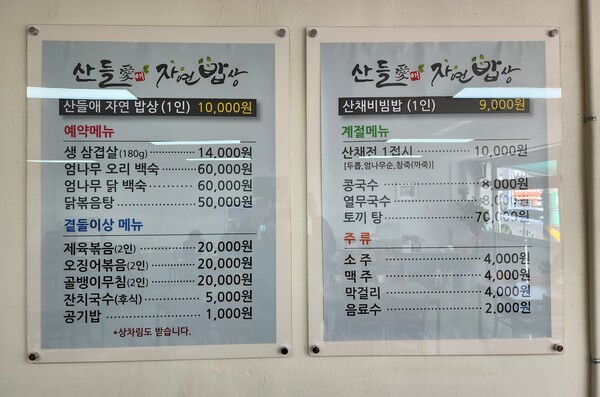 산들愛애 자연밥상
산들애 자연 밥상 (1인) 10,000원
예약메뉴
생 삼겹살(180g) 14,000원
엄나무 오리 백숙 60,000원
엄나무 닭 백숙 60,000원
닭볶음탕 50,000원
곁들이상 메뉴
제육볶음(2인) 20,000원
오징어볶음(2인) 20,000원
골뱅이무침(2인) 20,000원
잔치국수(후식) 5,000원
공기밥 1,000원
*상차림도 받습니다.
산들愛애 자연밥상
산채비빔밥 (1인) 9,000원
계절메뉴
산채전 1접시 10,000원
[두릅,엄나무순,참죽(까죽)]
콩국수 8,000원
열무국수 8,000원
토끼 탕 70,000원
주 류
소 주 4,000원
맥 주 4,000원
막걸리 4,000원
음료수 2,000원